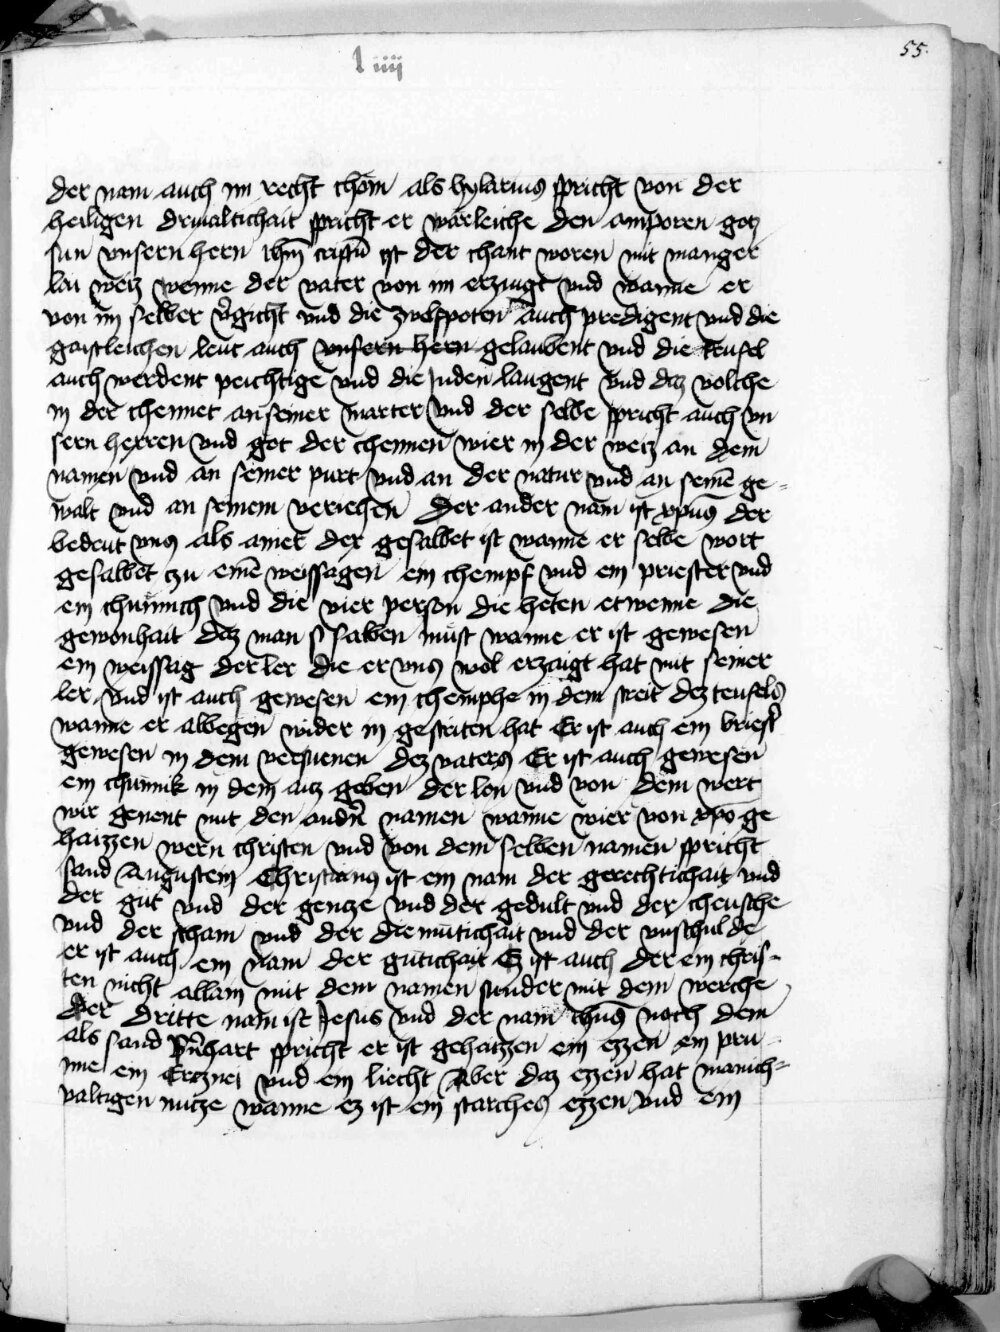 55.
l iiij
der nam auch im recht chom als hylarius spricht von der
heiligen driualtichait spricht er warleiche den amporen gotz
sun vnsern hern ihm cristu ist der chant woren mit manger
lai weiz wenne der vater von im erzaugt vnd wanne er
von im selber v̾gicht vnd die zwelfpoten auch predigent vnd die
gaistleichen leut auch vnsern hern gelaubent vnd die teufel
auch werdent peichtige vnd die Juden laugent vnd daz volche
in der chennet an seiner marter vnd der selbe spricht auch vn
sern herren vnd got der chennen wier in der weiz an dem
namen vnd an seiner purt vnd an der natur vnd an seinē ge-
walt vnd an seinem veriechen Der ander nam ist xpūs der
bedeut vns als ainer der gesalbet ist wanne er selbe wort
gesalbet zu einē weissagen ein chempf vnd ein priester vnd
ein chunnich vnd die vier person die heten etwenne die
gewonhait daz man s salben must wanne er ist gewesen
ein weissag der ler die er vns wol erzaigt hat mit seiner
ler vnd ist auch gewesen ein chemphe in dem streit dez teufels
wanne er albegen wider in gestriten hat Er ist auch ein briest̾
gewesen in dem versuenen dez vaters Er ist auch gewesen
ein chunnik in dem auz geben der lon vnd von dem wert
wir genent mit den andn̾ namen wanne wier von xpō ge
haizzen wern christen vnd von dem selben namen spricht
sand Augustein Christianus ist ein nam der gerechtichait vnd
der gut vnd der gencze vnd der gedult vnd der cheusche
vnd der scham vnd der diemutichait vnd der vnschulde
er ist auch ein nam der gutichait Ez ist auch der ein chris-
ten nicht allain mit dem namen sunder mit dem werche
Der dritte nam ist Jesus vnd der nam noch dem
als sand Bn̾hart spricht er ist gehaizzen ein ezzen ein pru-
nne ein Ercznei vnd ein liecht Aber daz ezzen hat manich-
valtigen nucze wanne ez ist ein starches ezzen vnd ein